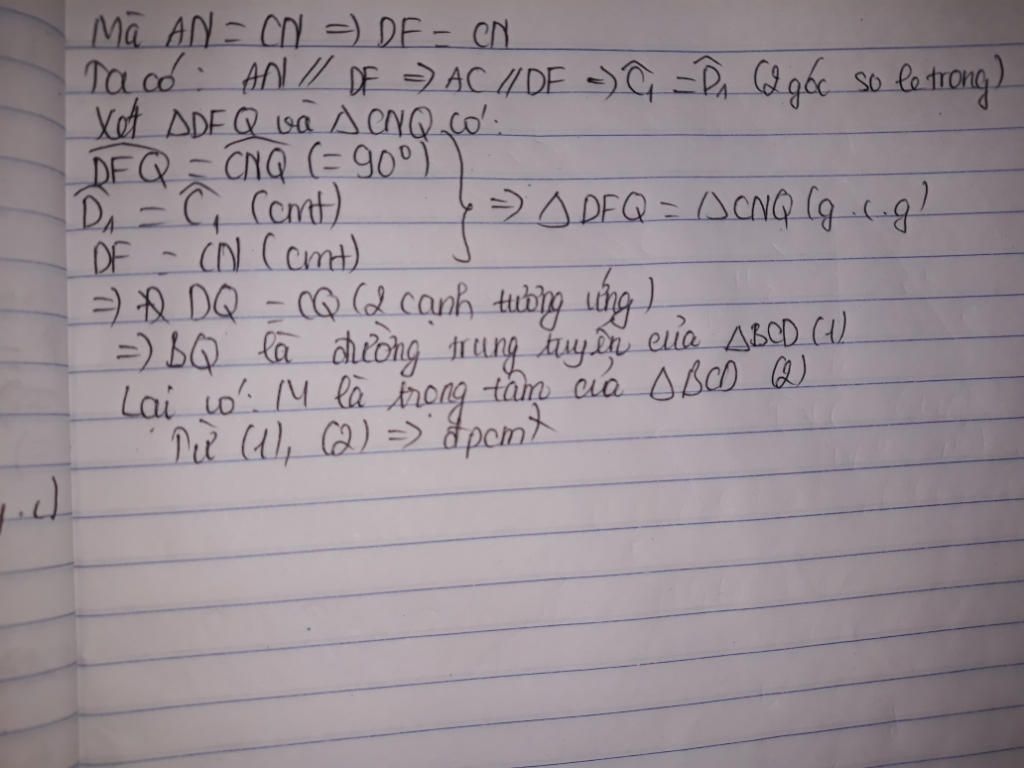 Mà AN = CN => DF = CN
Ta có: AN // DF => AC // DF => Ĉ₁ = D̂₁ (2 góc so le trong)
Xét ΔDFQ và ΔCNQ có:
DFQ = CNQ (= 90°)
D̂₁ = Ĉ₁ (cmt)
DF = CN (cmt)
} => ΔDFQ = ΔCNQ (g.c.g)
=> DQ = CQ (2 cạnh tương ứng)
=> BQ là đường trung tuyến của ΔBCD (1)
Lại có: M là trọng tâm của ΔBCD (2)
Từ (1), (2) => đpcm
.c)